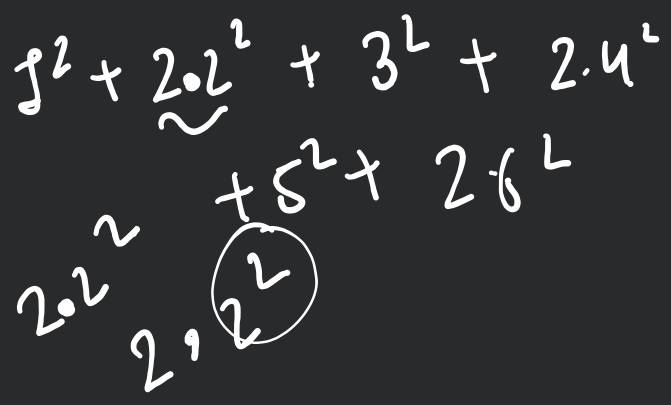 1² + 2.2² + 3² + 2.4²
+ 5² + 2.6²
2.2²
2,2²